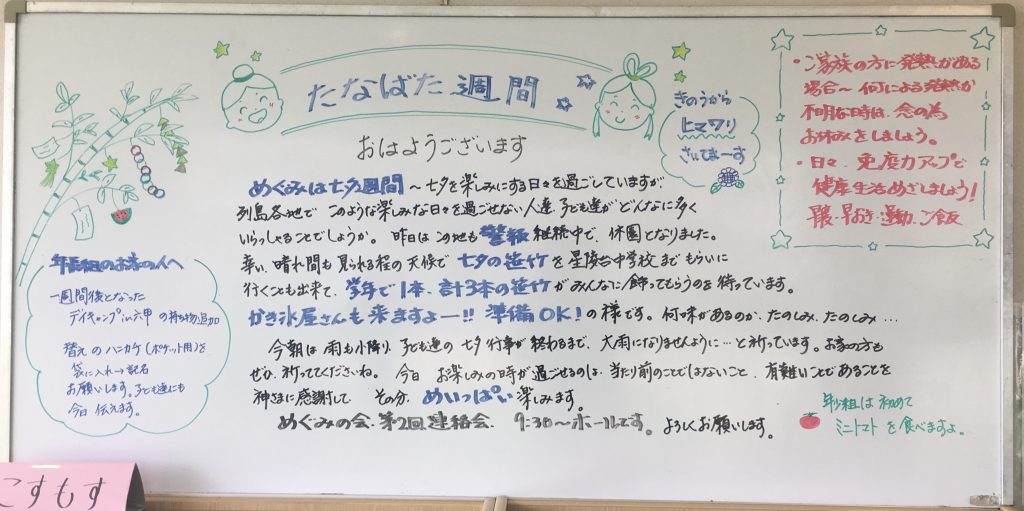 たなばた週間
おはようございます
きのうから
ヒマワリ
さいてまーす
・ご家族の方に発熱がある
場合〜何による発熱か
不明な時は、念の為
お休みをしましょう。
・日々、免疫力アップで
健康生活めざしましょう!
早寝・早おき・運動、ご飯
めぐみは七夕週間〜七夕を楽しみにする日々を過ごしていますが、
列島各地で このような楽しみな日々を過ごせない人達、子ども達がどんなに多く
いらっしゃることでしょうか。昨日は この地も警報継続中で、休園となりました。
幸い、晴れ間も見られる程の天候で 七夕の笹竹を星陵台中学校まで もらいに
行くことも出来て、学年で1本、計3本の笹竹がみんなに飾ってもらうのを待っています。
かき氷屋さんも来ますよー!! 準備OK!の様です。何味があるのか、たのしみ、たのしみ…
今朝は 雨も小降り、子ども達の 七夕行事が 終わるまで、大雨になりませんように…と祈っています。お家の方も
ぜひ、祈ってくださいね。今日 お楽しみの時が過ごせるのは、当たり前のことではないこと、有難いことであることを
神さまに感謝して その分、めいっぱい 楽しみます。
めぐみの会、第2回連絡会、9:30〜ホールです。よろしくお願いします。
年長組のお家の人へ
一週間後となった
デイキャンプin六甲 の持ち物追加
替えの ハンカチ(ポケット用)を
袋に入れ→記名
お願いします。子ども達にも
今日 伝えます。
年少組は 初めて
ミニトマト を食べますよ。
こすもす